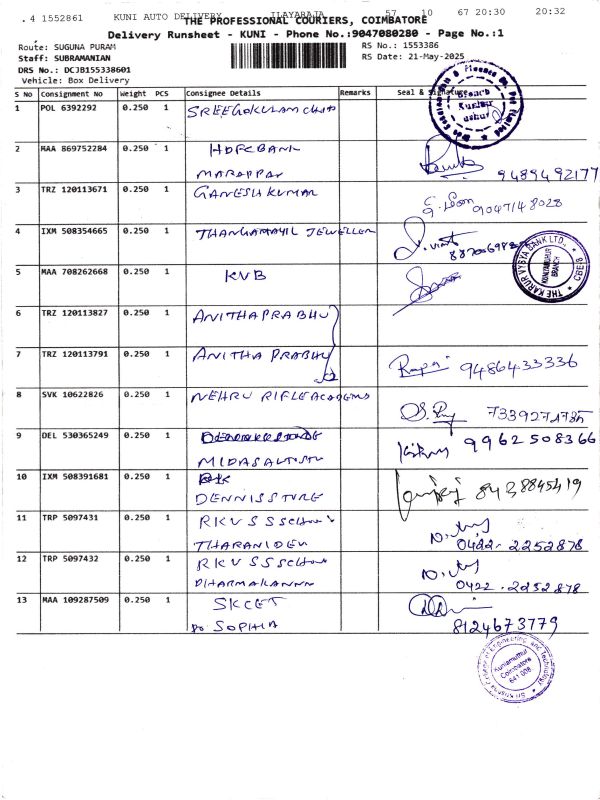 . 4 1552861 KUNI AUTO DELIVERY ILAYARAJA 57 10 67 20:30 20:32
THE PROFESSIONAL COURIERS, COIMBATORE
Delivery Runsheet - KUNI - Phone No.:9047080280 - Page No.:1
Route: SUGUNA PURAM RS No.: 1553386
Staff: SUBRAMANIAN RS Date: 21-May-2025
DRS No.: DCJB155338601
Vehicle: Box Delivery
S No Consignment No Weight PCS Consignee Details Remarks Seal & Signature
1 POL 6392292 0.250 1 SREEGOKULAM CHIT
Branch
2 MAA 869752284 0.250 1 HDFC BANK
MARAPPAN 9489492177
3 TRZ 120113671 0.250 1 GANESH KUMAR
9047148028
4 IXM 508354665 0.250 1 THANGAMAYIL JEWELLER
THE KARUR VYSYA BANK LTD.,
KUNIAMUTHUR
BRANCH
CBE-8
5 MAA 708262668 0.250 1 KVB
6 TRZ 120113827 0.250 1 ANITHA PRABHU
7 TRZ 120113791 0.250 1 ANITHA PRABHU
9486433336
8 SVK 10622826 0.250 1 NEHRU RIFLE ACADEMS
9 DEL 530365249 0.250 1
MIDAS 9962508366
10 IXM 508391681 0.250 1
DENNIS STORE 8438845419
11 TRP 5097431 0.250 1 RKV S S School
THARANIDEV 0422-2252878
12 TRP 5097432 0.250 1 RKV S S School
DHARMAKANNN 0422-2252878
13 MAA 109287509 0.250 1 SKCET
Do SOPHIA 8124673779
Sri Krishna College of Engineering and Technology
Kuniamuthur
Coimbatore
641 008